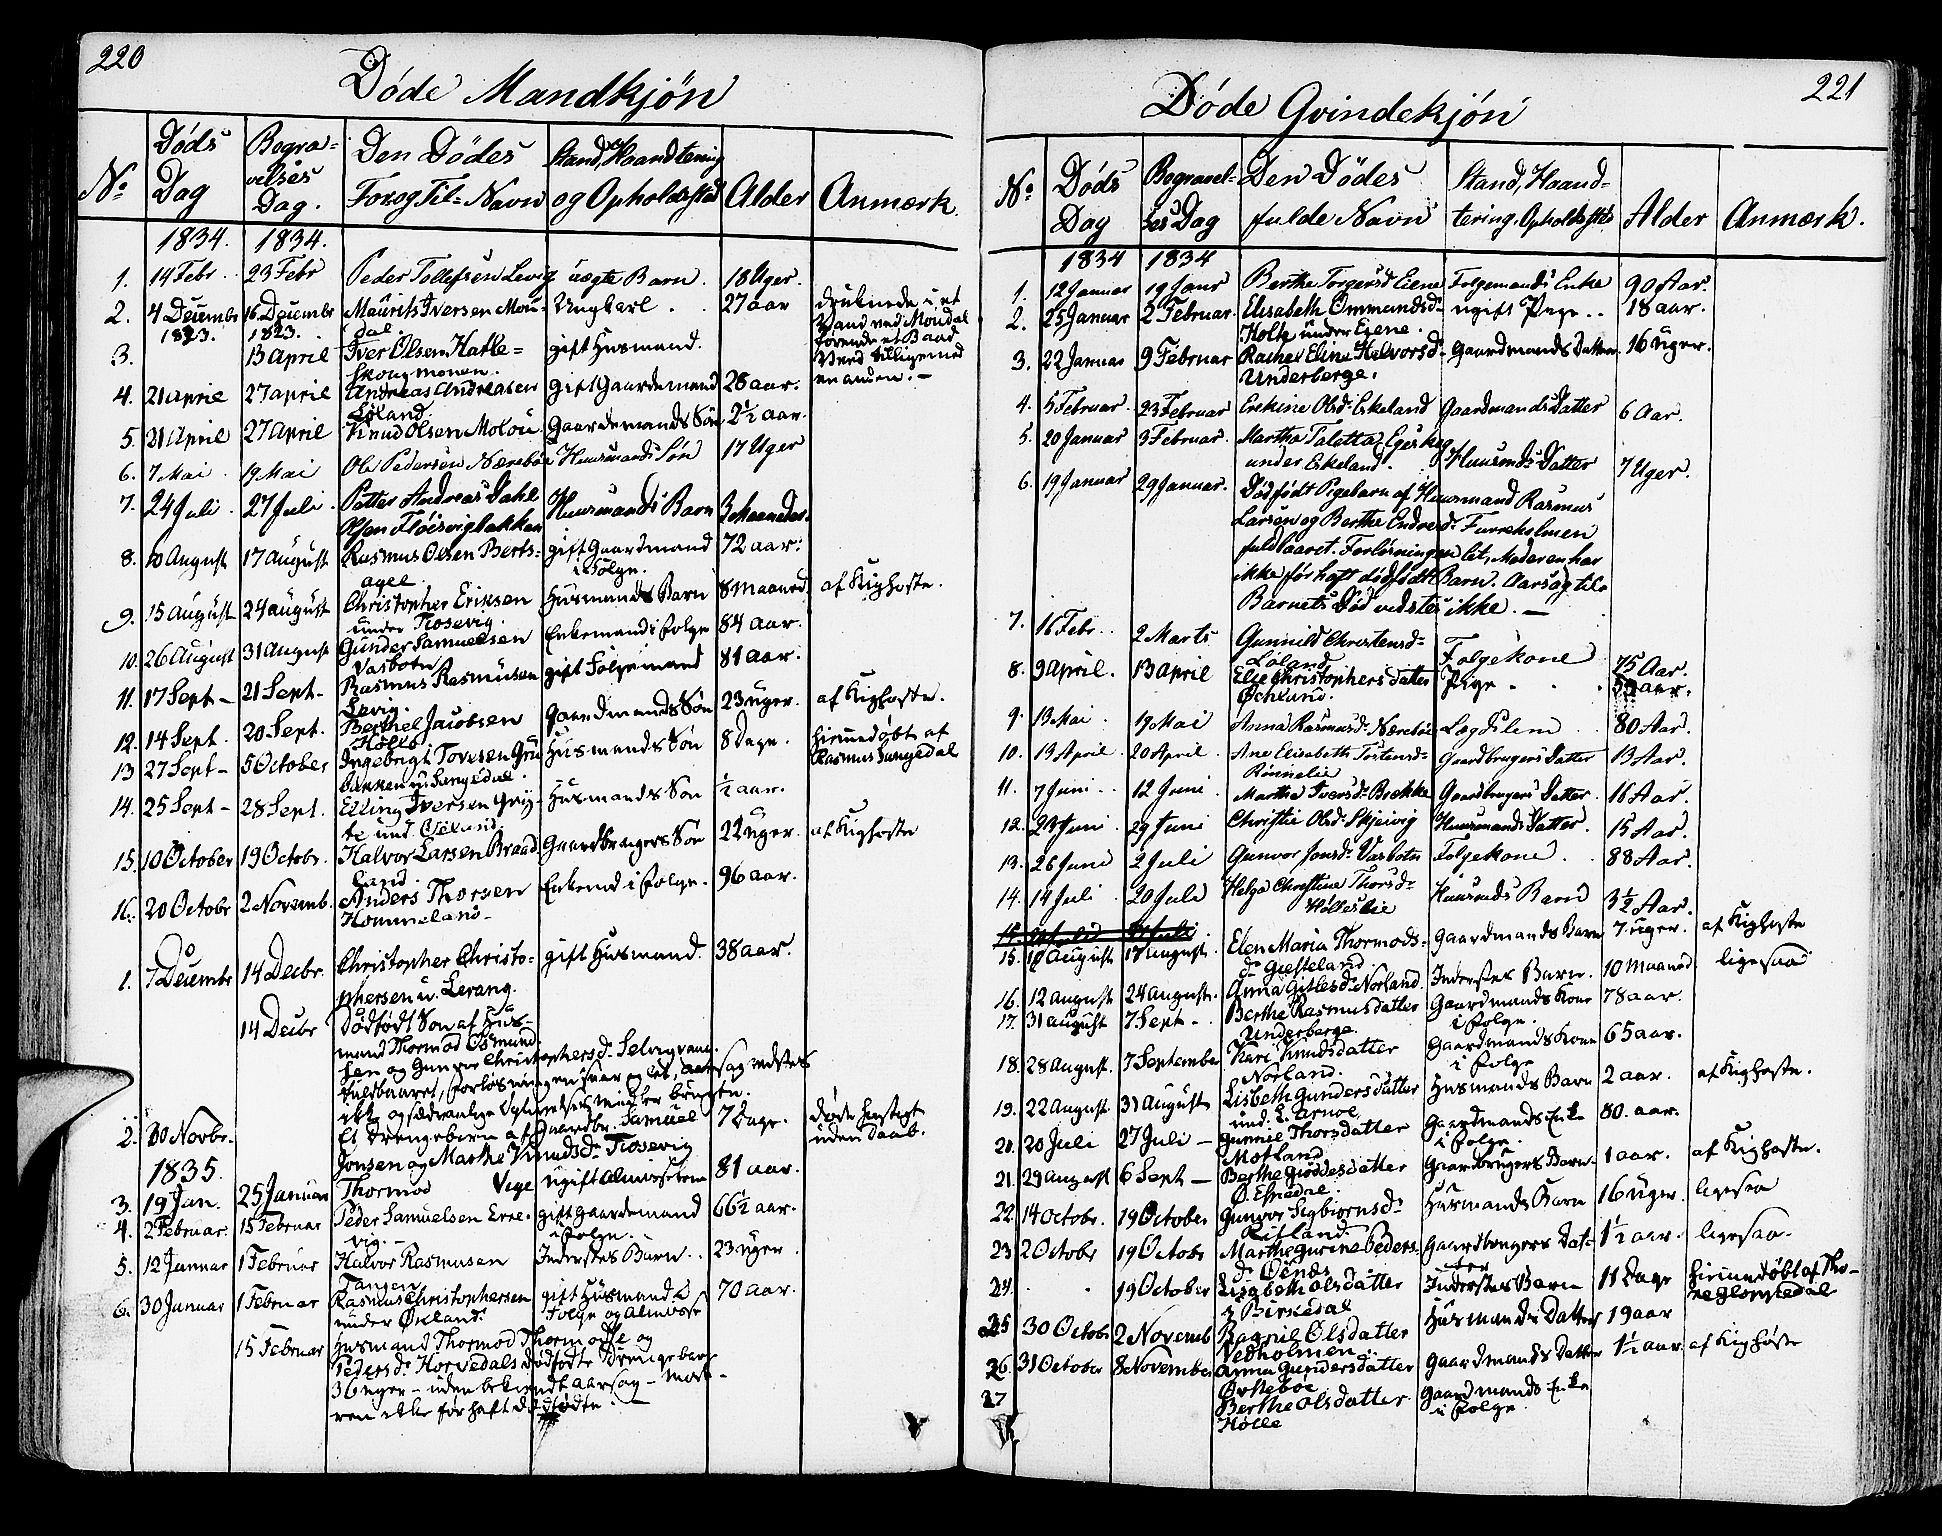 220
Døde Mandkjøn
No
Døds Dag
Begravelses Dag.
Den Dödes For og Til=Navn
Stand, Haandtering og Opholdssted
Alder
Anmærk.
1834. 1834.
1. 14 Febr. 23 Febr Peder Tollefsen Levig uægte Barn. 18 Uger.
2. 4 Decembr 1823. 16 Decembr 1823. Maurits Iversen Moudal Ungkarl . . 27 aar druknede i et
Vand ved Moudal
3. 13 April Iver Olsen Hatle= gift Husmand.
Skougmonen.
4. 21 april 27 april Andreas Andreasen gift Gaardemand 28 aar.
enanden. —
Løland.
5. 21 April 27 april Knud Olsen Molou Gaardemands Søn 2½ aar.
6. 7 Mai . 19 Mai Ole Pedersen Nærebøe Huusmands Søn 17 Uger
7. 24 Juli . 27 Juli . Petter Andreas Dahl Huusmands Barn 3 Maaneder.
Olsen Fløisvigbakken
8. 10 August 17 August Rasmus Olsen Berts= gift Gaardmand 72 aar.
agel. i Folge.
9. 15 August 24 august Christopher Eriksen Husmands Barn 8 maaned. af Kighoste.
under Rosevig.
10. 26 August 31 August Gunder Samuelsen Enkemand i Folge 84 aar.
Vasbotn
11. 17 Sept — 21 Sept. Rasmus Rasmusen gift Følgemand 81 aar.
Levig.
12. 14 Sept. 20 Sept. Berthel Jacobsen Gaardmands Søn 23 uger. af Kighoste.
Hølle
13 27 Sept — 5 October Ingebrigt Toresen Gru Husmands Søn 8 Dage. hiemedøbt af
Rasmus Lungedal
14. 25 Sept — 28 Sept. Elling Iversen Gry- Husmands Søn ½ aar.
15. 10 October 19 Octobr. Halvor Larsen Braad Gaardbrugers Søn 22 uger. af Kighoste
land.
16. 20 Octobr 2 Novemb. Anders Thorsen Enkemd i Folge. 96 aar.
Hommeland —
1. 7 Decembr 14 Decbr. Christopher Christo- gift Husmand. 38 aar.
phersen u. Lerang.
14 Decbr Dødfødt Søn af Hus-
mand Thormod Osmund
sen og Gunvor Christophersd. Selvigvand.
fuldbaaret, forløsningen svar og let, aarsag vidstes
ikke, og sædvanlige Oplivelses midler brugtes.
2. 30 Novbr. Et Drengebarn af Gaardbr. Samuel 7 Dage. døde hastigt
Jonsen og Marthe Knudsd. Rosevig uden Daab.
1835.
3. 19 Jan. 25 Januar Thormod Vige ugift Almisselem 81 aar.
4. 2 Februar. 15 Februar Peder Samuelsen Erre- gift gaardemand 66½ aar.
vig. — i Folge.
5. 12 Januar 1 Februar Halvor Rasmusen Inderstes Barn . . 23 uger
Tangen
6. 30 Januar 1 Februar Rasmus Christophersen gift Husmand 70 aar.
under Økland. Folge og Almisse
15 Februar Husmand Thormod Thormodse og
Pedersd. Horvedals dødfødte Drengebarn
36 uger — uden bekiendt aarsag — mod-
ren ikke før haft dødfødte. —
221
Døde Qvindekjön
No
Døds Dag
Begravelses Dag
Den Dödes fulde Navn
Stand, Haandtering, Opholdssted
Alder
Anmærk.
1834 1834
1. 12 Januar 19 Janr Berthe Torgersd. Eiene Folgemands Enke 90 Aar.
2. 25 Januar 2 Februar. Elisabeth Ommundsd. ugift Pige . . 18 aar.
Holte under Eiene .
3. 22 Januar 9 Februar Rachel Eline Halvorsd. Gaardmands Datter 16 uger.
Underberge.
4. 5 Februar. 23 Februar Erekine Olsd. Eskeland Gaardmands Datter 6 Aar.
5. 20 Januar 3 Februar. Martha Taletta Egeskog
under Eskeland . Huusmds Datter 7 Uger.
6. 19 Januar 29 Januar. Dødfødt Pigebarn af Huusmand Rasmus
Larsen og Berthe Endresd. Furreholmen
fuldbaaret. Forløsningen let, Moderen har
ikke før haft dödfødt Barn. Aarsag til
Barnets Død vidstes ikke. —
7. 16 Febr. . 2 Marts Gunnild Christensd= Folgekone 75 Aar.
Løland
8. 9 April. 13 april Elie Christophers datter Pige . .
Öchlund.
9. 13 Mai . 19 Mai Anna Rasmusd. Nærebøe Lægdslem . . 80 Aar.
10. 13 April 20 April . Ane Elisabeth Tostensd= Gaardbrugers Datter 13 Aar.
Rønnelie
11. 7 Juni . . 12 Juni . Martha Iversd. Brekke Gaardbrugers Datter. 16 Aar.
12. 23 Juni . 29 Juni Christie Olsd. Skjervig Huusmands Datter. 15 Aar.
13. 26 Juni 2 Juli Gunvor Jonsd. Vasbotn Folgekone . . 88 Aar.
14. 14 Juli . 20 Juli Helga Christine Thorsd= Huusmds Barn 3½ Aar.
Helleslie
15. 10 August 17 August. Elen Maria Thormods- Gaardmands Barn 7 uger. af Kighoste
d. Giesteland.
16. 12 august 24 august. Anna Gitlesd. Norland. Inderstes Barn. 10 Maaned. ligesaa
17. 31 august 7 Sept — . Berthe Rasmusdatter Gaardmands Kone 78 aar.
Underberge i Folge.
18. 28 august. 7 September Kari Knudsdatter Gaardmands Kone 65 aar.
Norland. i Folge
19. 22 August. 31 August Lisbeth Gundersdatter Husmands Barn 2 aar. af Kighoste.
20. 20 Juli 27 Juli — Gunnil Thorsdatter Gaardmands Enke 80. aar.
Motland i Folge.
21. 29 august 6 Sept — Berthe Giøddesdatter Gaardbrugers Barn. 1 aar. af Kighoste.
22. 14 octobr. 19 October Gunvor Sigbiørnsd. Husmands Barn 16 uger. ligesaa
Ritland.
23 2 Octobr 19 Octobr Marthe gurine Peders- Gaardbrugers Dat- 1½ aar. ligesaa.
d. Öines ter
24. . . 19 October Lisabeth Olsdatter Inderstes Barn 11 Dage hiemmedøbt af Tho-
Birkedal
25 30 Octobr 2 Novemb Ragnil Olsdatter Husmands Datter 19 aar
Vedholmen . .
26. 31 October 8 November Anna Gundersdatter Gaardmands Datter 1½ aar. af Kighoste
Ørkeboe
27 Berthe Olsdatter Gaardmands Enke
Hølle i Folge